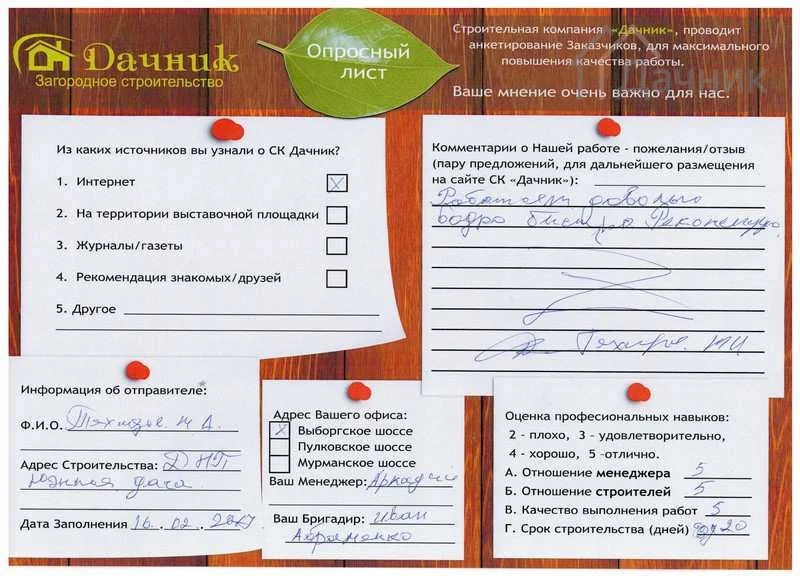 Дачник
Загородное строительство
Опросный
лист
Строительная компания «Дачник», проводит
анкетирование Заказчиков, для максимального
повышения качества работы.
Ваше мнение очень важно для нас.
Дачник
Из каких источников вы узнали о СК Дачник?
1. Интернет X
2. На территории выставочной площадки
3. Журналы/газеты
4. Рекомендация знакомых/друзей
5. Другое
Комментарии о Нашей работе - пожелания/отзыв
(пару предложений, для дальнейшего размещения
на сайте СК «Дачник»):
довольно
Информация об отправителе:
Ф.И.О.
Адрес Строительства: ДНП
дача
Дата Заполнения 16.02.2017
Адрес Вашего офиса:
X Выборгское шоссе
Пулковское шоссе
Мурманское шоссе
Ваш Менеджер: Аркадие
Ваш Бригадир: Иван
Абраменко
Оценка профессиональных навыков:
2 - плохо, 3 - удовлетворительно,
4 - хорошо, 5 -отлично.
А. Отношение менеджера 5
Б. Отношение строителей 5
В. Качество выполнения работ 5
Г. Срок строительства (дней) 20